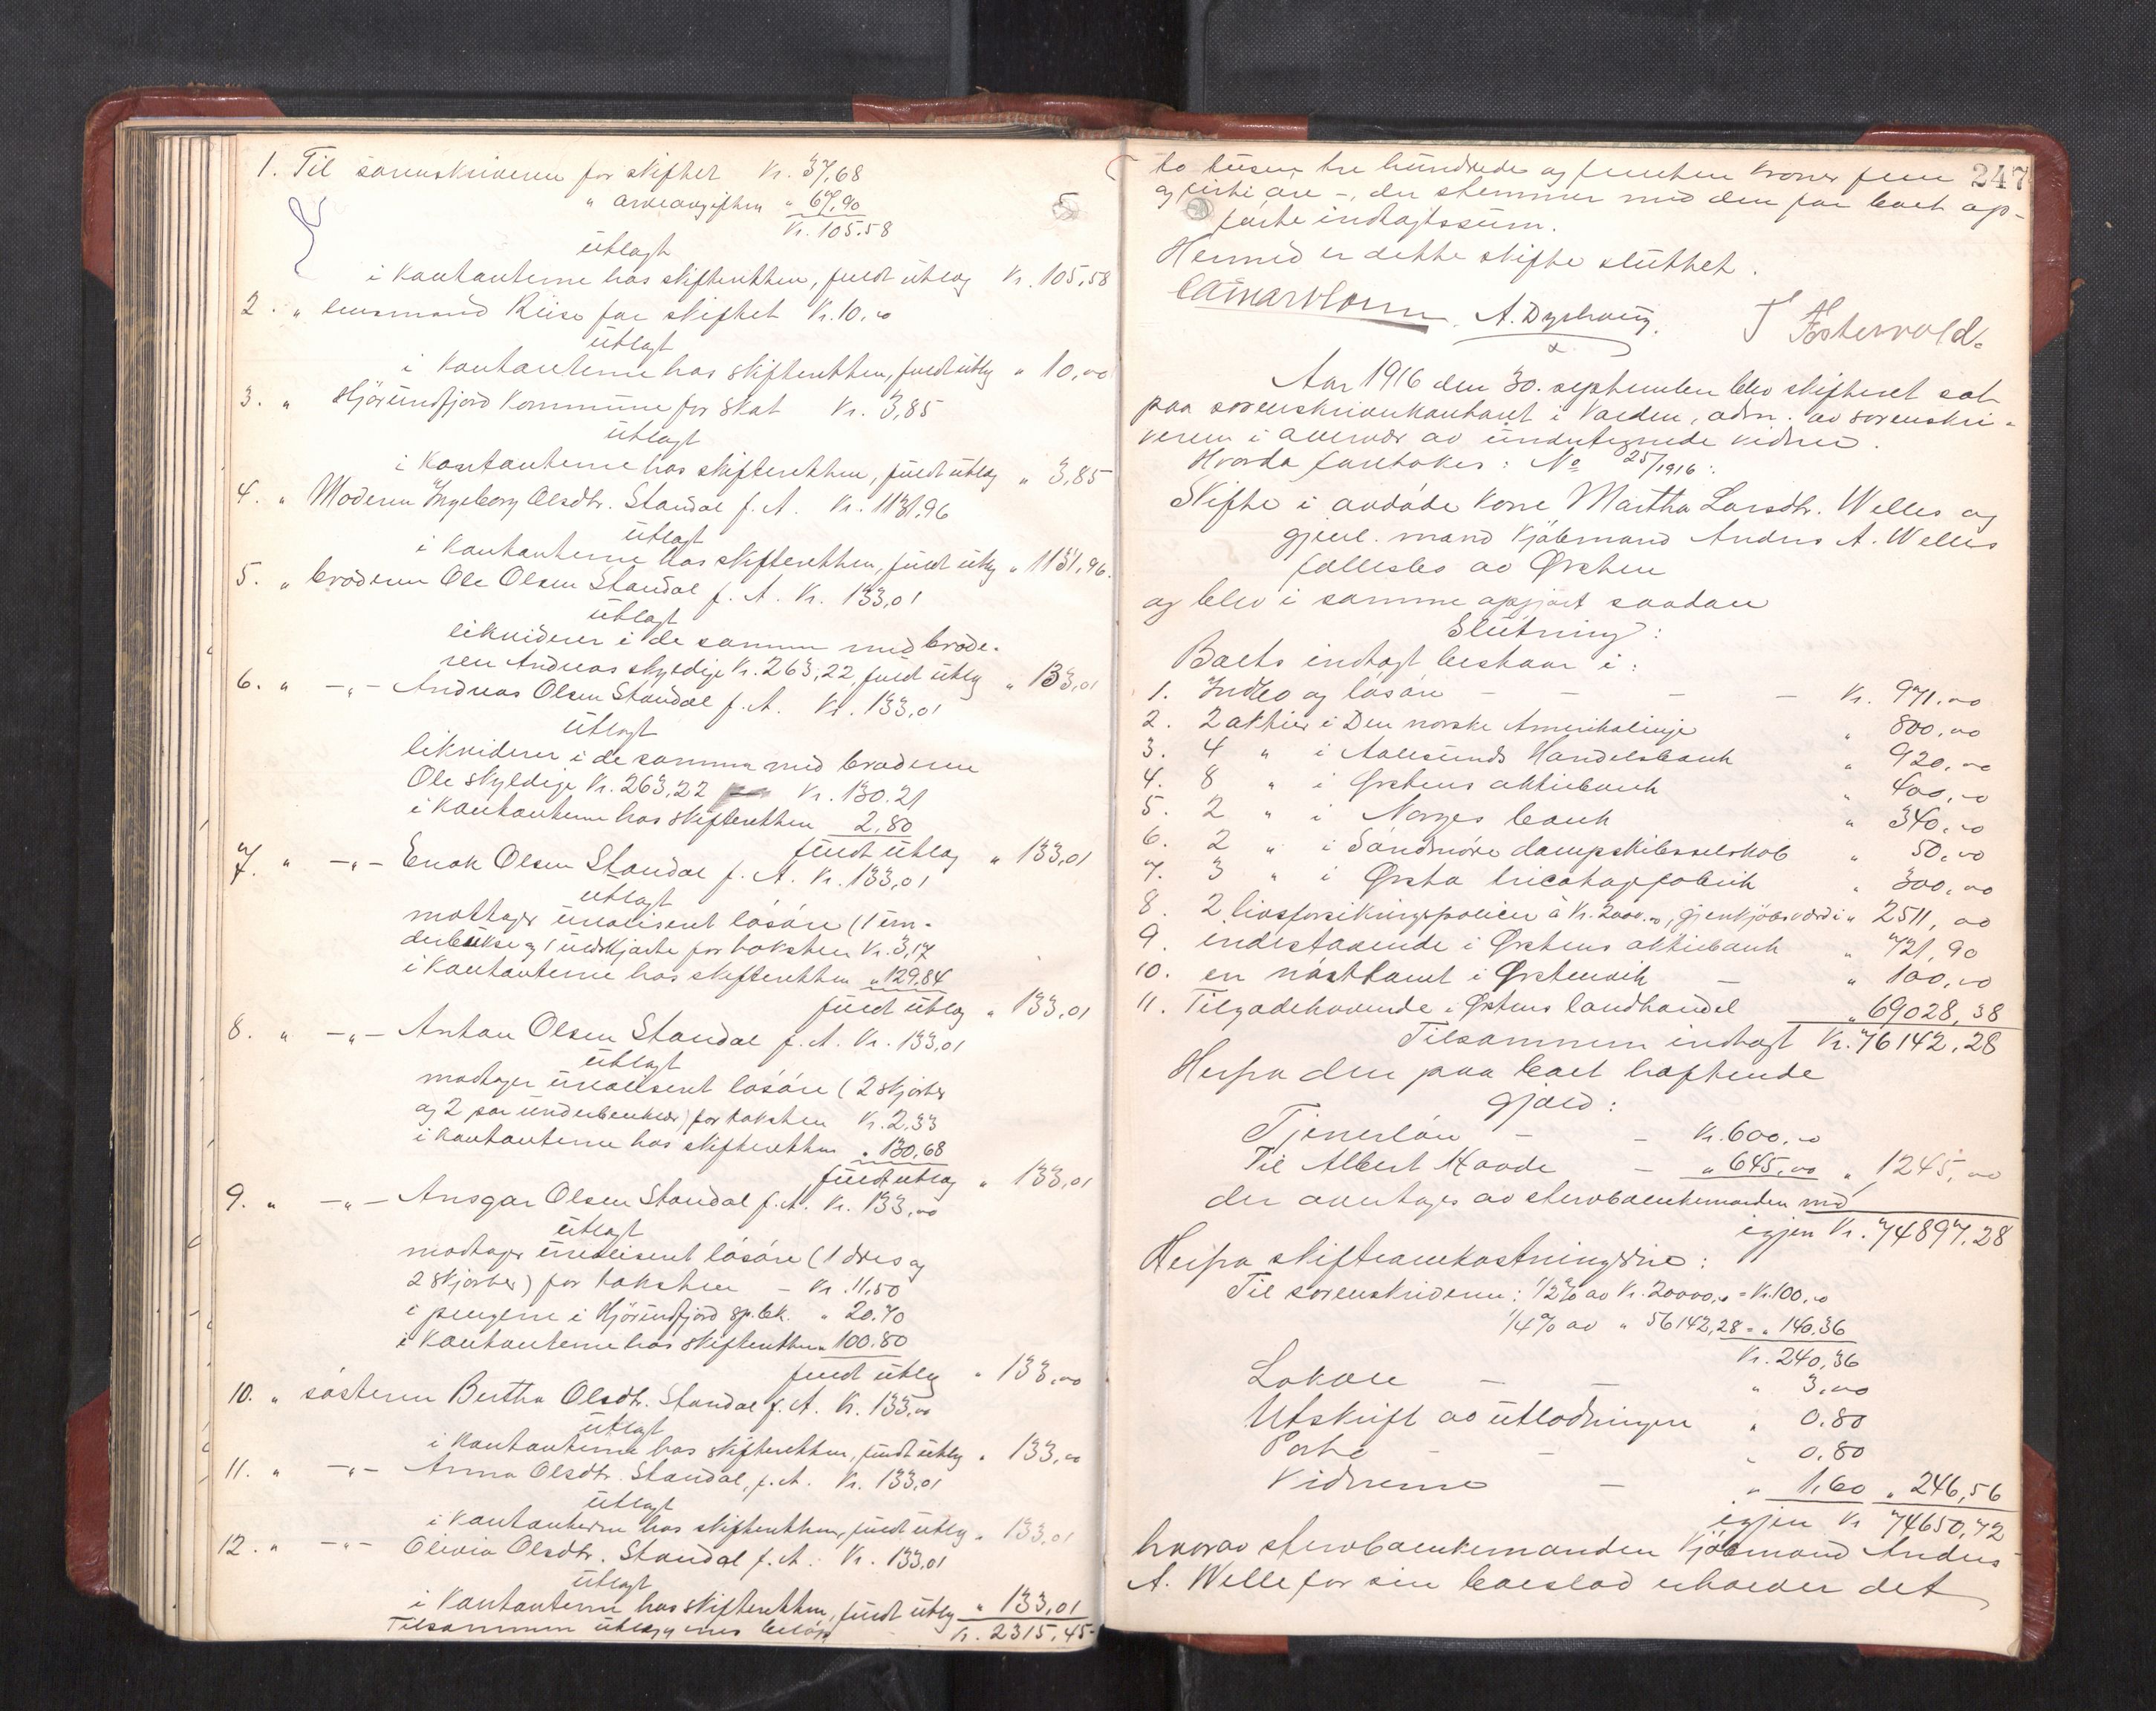 1. Til sorenskriveren for skiftet Kr. 37,68
" arveavgiften " 67,90
Kr. 105.58
utlagt
i kontanterne hos skifteretten, fuldt utlæg Kr. 105,58
2. " lensmand Riise for skiftet Kr. 10,00
utlagt
i kontanterne hos skifteretten, fuldt utlæg " 10,00
3. " Hjörundfjord kommune for skat Kr. 3,85
utlagt
i kontanterne hos skifteretten, fuldt utlæg " 3,85
4. " Moderen Ingeborg Olsdtr. Standal f. A. Kr. 1131,96
utlagt
i kontanterne hos skifteretten, fuldt utlæg " 1131,96.
5. " broderen Ole Olsen Standal f. A. Kr. 133,01
utlagt
likviderer i de sammen med brode-
ren Andreas skyldige Kr. 263,22, fuldt utlæg " 133,01
6. " -"- Andreas Olsen Standal f. A. Kr. 133,01
utlagt
likviderer i de sammen med broderen
Ole skyldige Kr. 263,22 Kr. 130.21
i kontanterne hos skifteretten 2,80
fuldt utlæg " 133,01
7. " -"- Enok Olsen Standal f. A. Kr. 133,01
utlagt
mottager urealisert lösöre (1 un-
derbukse og 1 uldskjorte for taksten Kr. 3,17
i kontanterne hos skifteretten " 129.84
fuldt utlæg " 133,01
8. " -"- Anton Olsen Standal f. A. Kr. 133,01
utlagt
modtager urealisert lösöre (2 skjorter
og 2 par underbenklær) for taksten Kr. 2,33
i kontanterne hos skifteretten " 130,68
fuldt utlæg " 133,01
9. " -"- Ansgar Olsen Standal f. A. Kr. 133,00
utlagt
modtager urealisert lösöre (1 dres og
2 skjorter) for taksten - Kr. 11,50
i pengene i Hjörundfjord sp.bk. " 20.70
i kontanterne hos skifteretten " 100.80
fuldt utlæg " 133,00
10. " sösteren Bertha Olsdtr. Standal f. A. Kr. 133,00
utlagt
i kontanterne hos skifteretten, fuldt utlæg " 133,00
11. " -"- Anna Olsdtr. Standal, f. A. Kr. 133,01
utlagt
i kontanterne hos skifteretten, fuldt utlæg " 133,01
12. " -"- Olivia Olsdtr. Standal f. A. Kr. 133,01
utlagt
i kontanterne hos skifteretten, fuldt utlæg " 133,01
Tilsammen utlæggenes belöp Kr. 2315,45-
247
to tusen tre hundrede og femten kroner fem
og firti øre -, der stemmer med den for boet op-
førte indtægtssum.
Hermed er dette skifte sluttet.
A. Dyshovig. T Æstervold.
Aar 1916 den 30. september blev skifteret sat
paa sorenskriverkontoret i Volden, adm. av sorenskri-
veren i overvær av undertegnede vidner.
Hvorda foretokes: No 25/1916:
Skifte i avdöde kone Martha Larsdtr. Welles og
gjenl. mand kjöbmand Andris A. Welles
fællesbo av Ørsten
og blev i samme opgjort saadan
Slutning:
Boets indtægt bestaar i:
1. Indbo og lösöre - - - - Kr. 971,00
2. 2 aktier i Den norske Amerikalinje " 800,00
3. 4 " i Aalesunds Handelsbank " 920,00
4. 8 " i Ørstens aktiebank " 400,00
5. 2 " i Norges bank " 340,00
6. 2 " i Söndmöre dampskibsselskab " 50,00
7. 3 " i Ørsta tricotagefabrik " 300,00
8. 2 livsforsikringspolicer à Kr. 2000,00, gjenkjöbsværdi " 2511,00
9. indestaaende i Ørstens aktiebank " 721,90
10. en nösttomt i Ørstenvik - " 100,00
11. Tilgodehavende i Ørstens landhandel " 69028,38
Tilsammen indtægt Kr. 76142,28
Herfra den paa boet heftende
gjæld:
Tjenerlön - - Kr. 600,00
Til Albert Maade - " 645,00 " 1245,00
der overtages av sterboenkemanden med
igjen Kr. 74897.28
Herfra skifteomkostningerne:
Til sorenskriveren: 1/2% av Kr. 20000,00 = Kr. 100,00
1/4% av " 56142,28 = " 140,36
Kr. 240,36
Lokale - - " 3,00
Utskrift av utlodningen " 0.80
Porto - - " 0.80
Vidnerne - " 1,60 " 246,56
igjen Kr 74650,72
hvorav sterboenkemanden kjöbmand Andris
A. Welle for sin boeslod erholder det